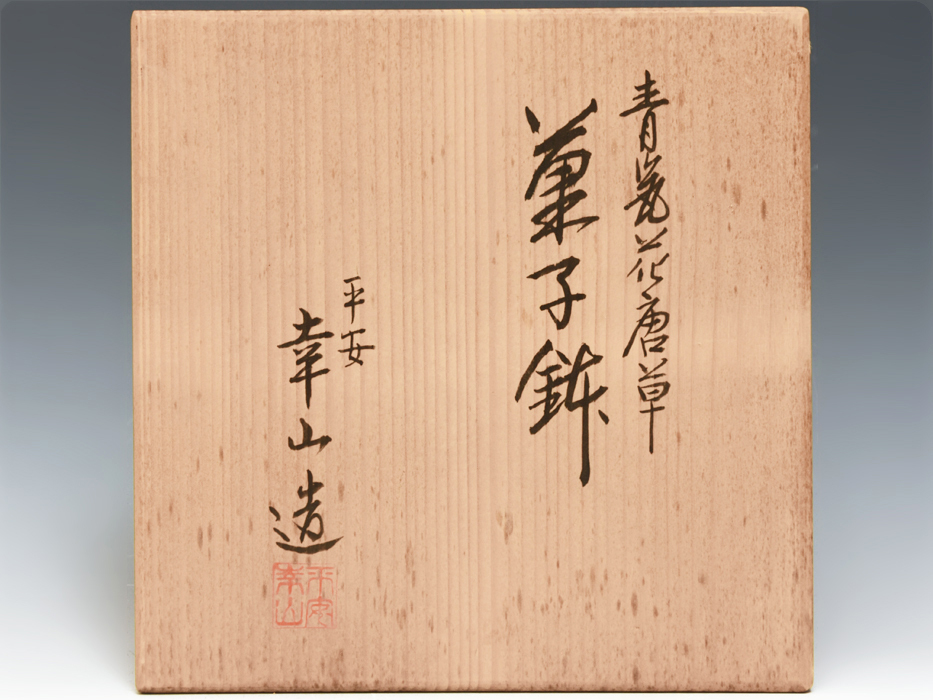 青瓷花唐草
菓子鉢
平安
幸山造
平安
幸山